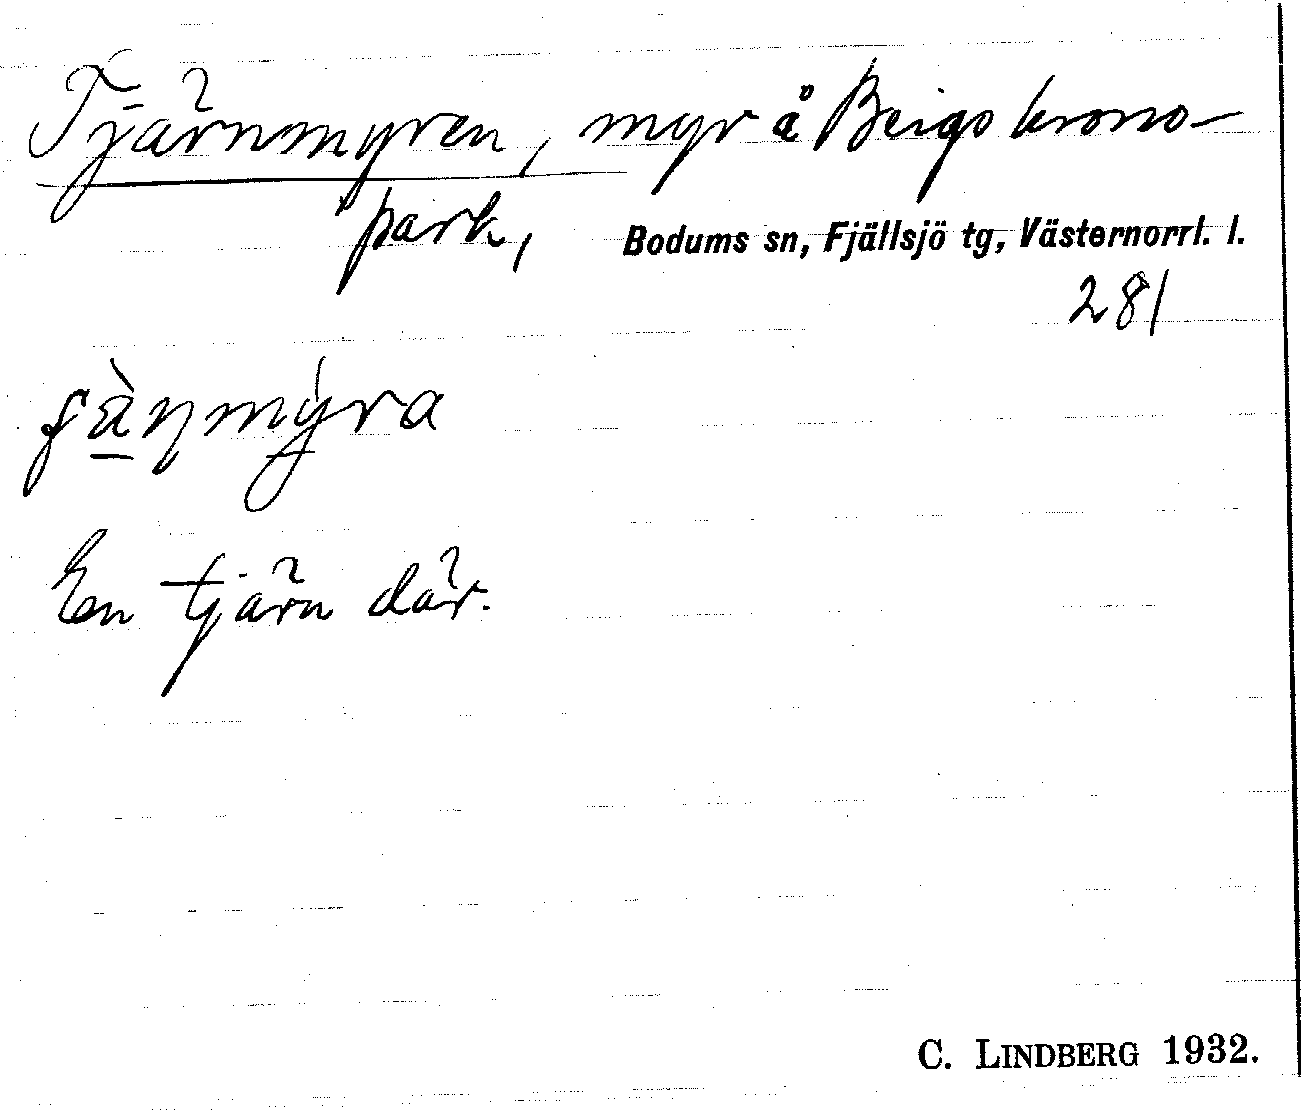 Tjärnmyren, myr å Bergs krono-
park, Bodums sn, Fjällsjö tg, Västernorrl. l.
281
En tjärn där.
C. LINDBERG 1932.